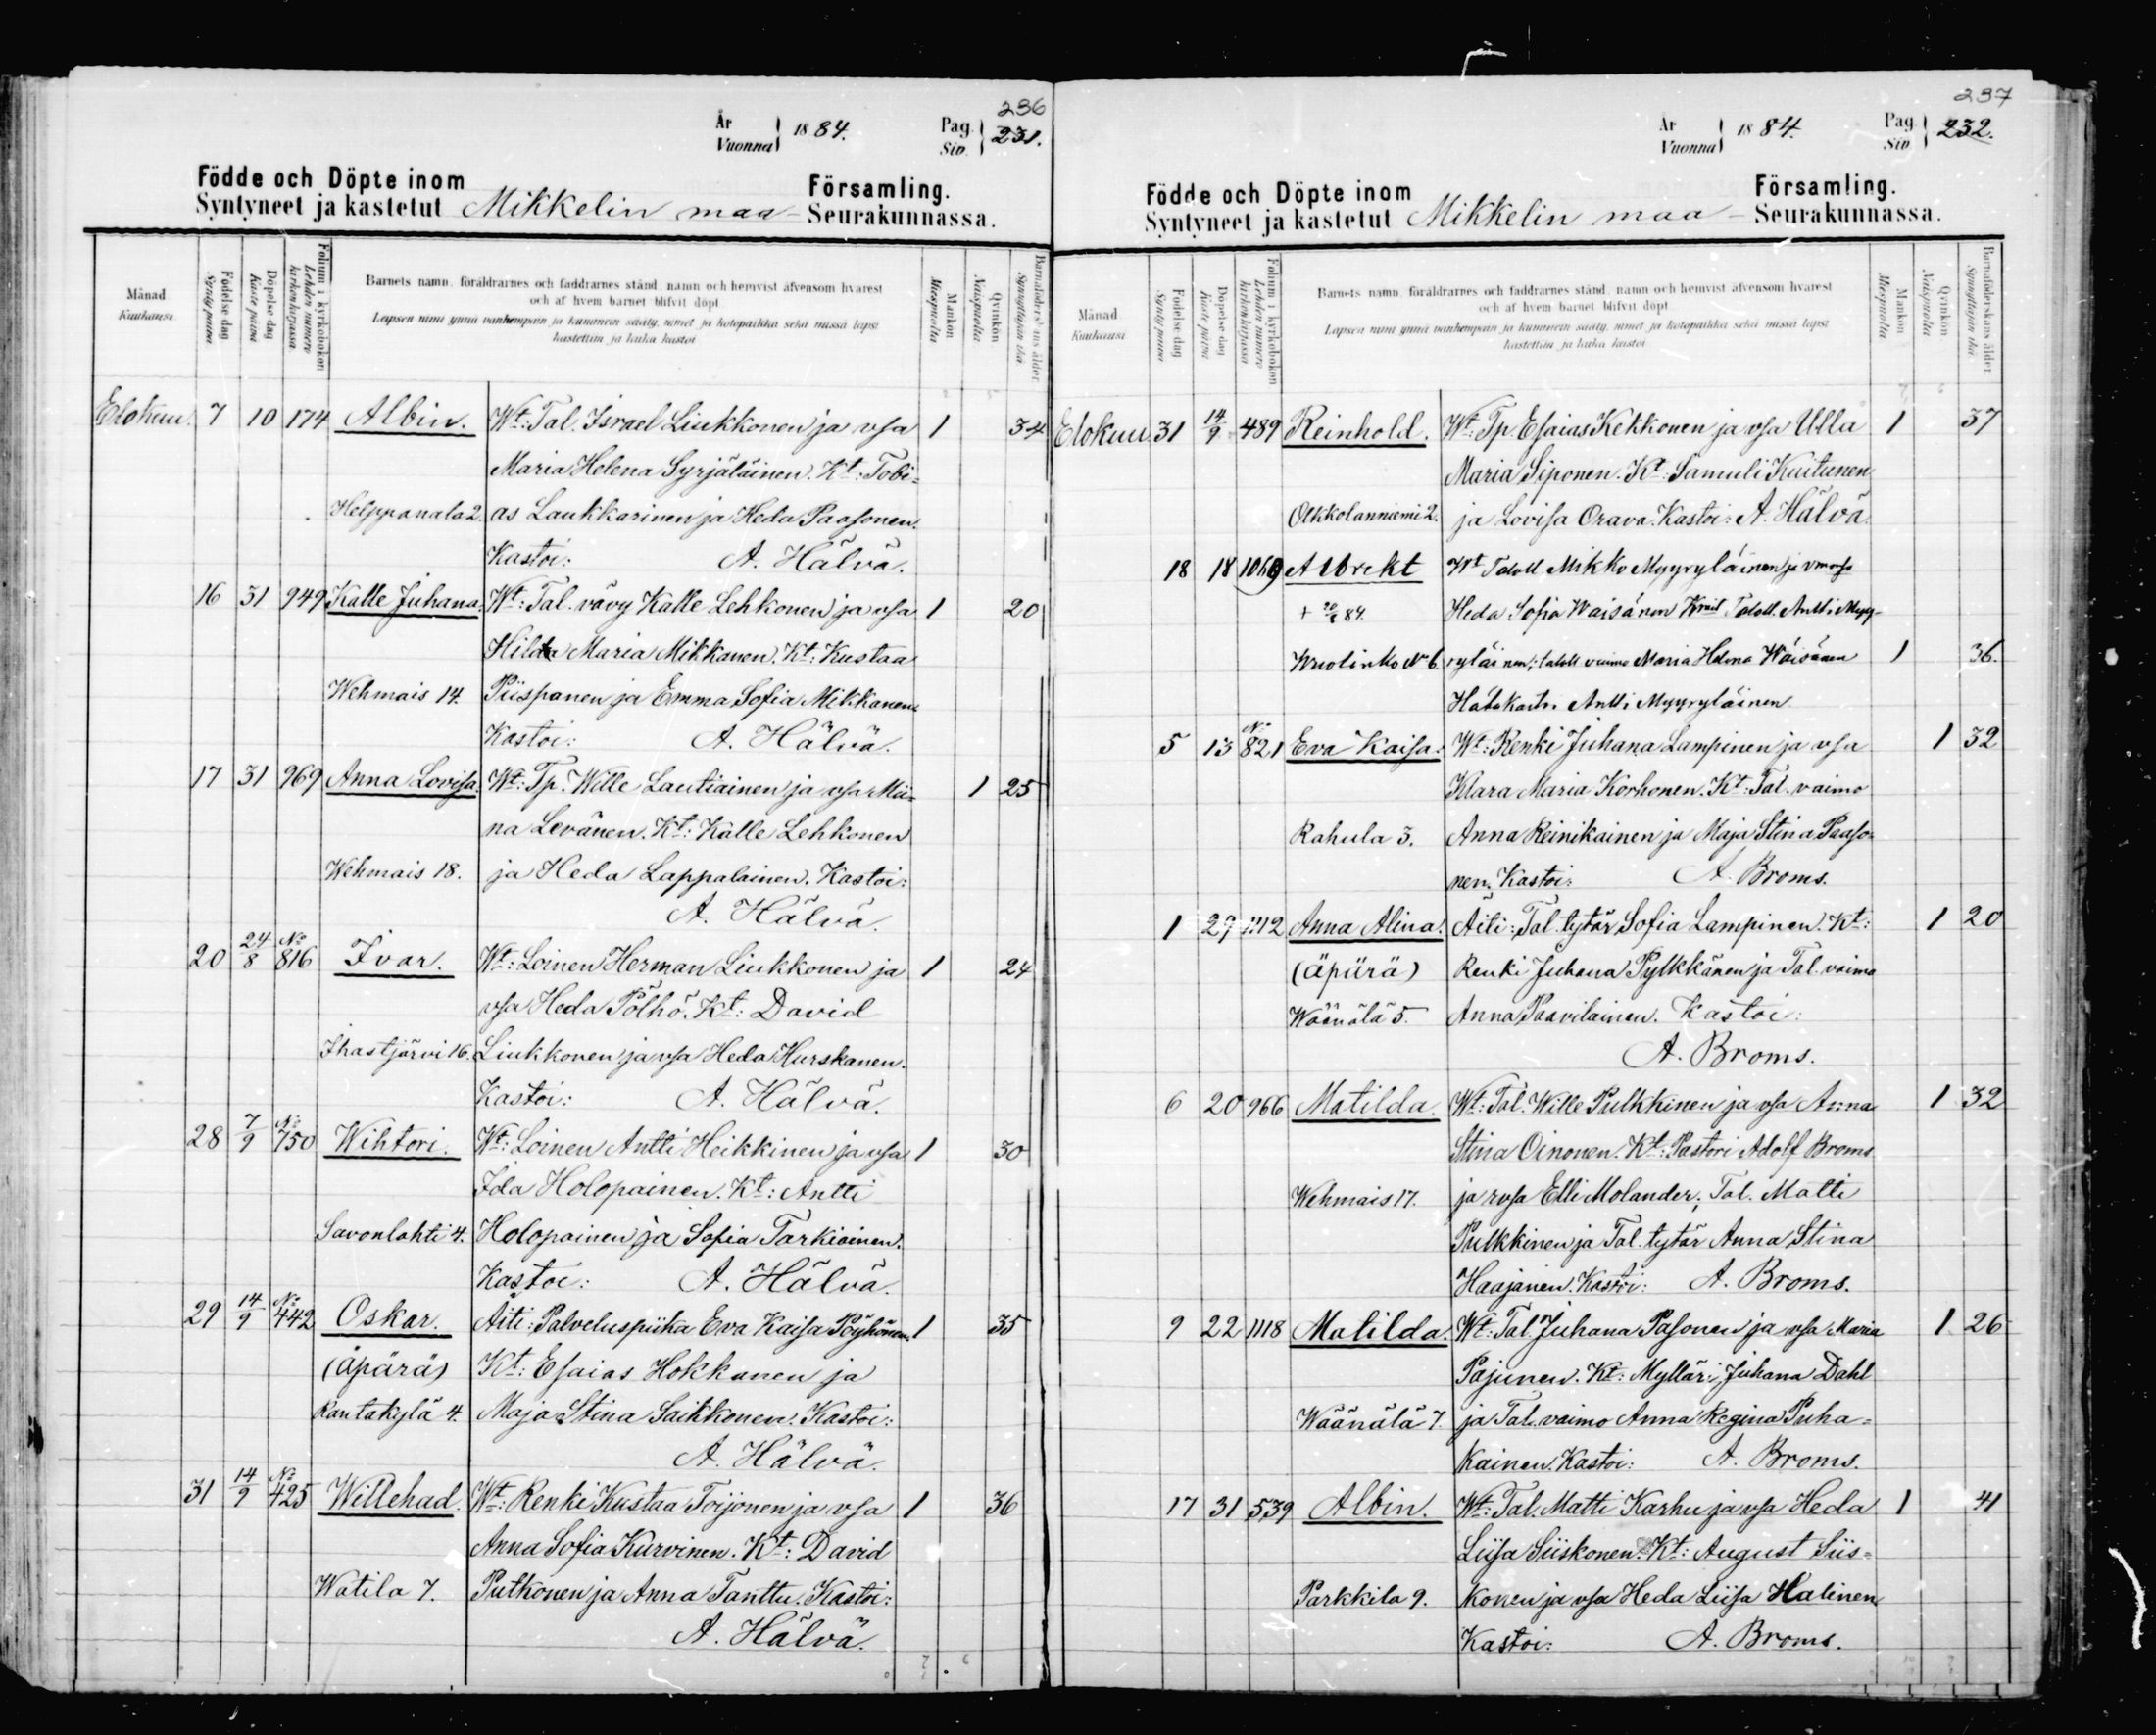 236
År
Vuonna } 1884. Pag. Siv. } 231.
Födde och Döpte inom Församling.
Syntyneet ja kastetut Mikkelin maa- Seurakunnassa.
Månad Kuukausi
Födelse dag Syntypäivä
Döpelse dag Kaste päivä
Folium i kyrkoboken Lehden numero kirkonkirjassa
Barnets namn, föräldrarnes och faddrarnes stånd, namn och hemvist äfvensom hvarest
och af hvem barnet blifvit döpt
Lapsen nimi ynnä vanhempain ja kummein sääty, nimet ja kotopaikka sekä missä lapsi
kastettiin ja kuka kastoi
Mankön Miespuolia
Qvinkön Naispuolia
Barnaföderskans ålder Synnyttäjän ikä
Elokuu. 7 10 174 Albin. Wt: Tal. Israel Liukkonen ja vsa 1 34
Maria Helena Syrjäläinen. Kt: Tobi=
Helppanala 2. as Laukkarinen ja Heda Paasonen.
Kastoi: A. Hälvä.
16 31 949 Kalle Juhana. Wt: Tal. vävy Kalle Lehkonen ja vsa 1 20
Hilda Maria Mikkanen. Kt: Kustaa
Wehmais 14. Piispanen ja Emma Sofia Mikkanen.
Kastoi: A. Hälvä.
17 31 969 Anna Lovisa. Wt: Tp. Wille Lautiainen ja vsa Mii= 1 25
na Levänen. Kt: Kalle Lehkonen
Wehmais 18. ja Heda Lappalainen. Kastoi:
A. Hälvä.
20 24/8 No 816 Ivar. Wt: Loinen Herman Liukkonen ja 1 24
vsa Heda Pölhö. Kt: David
Ihastjärvi 16. Liukkonen ja vsa Heda Hurskanen.
Kastoi: A. Hälvä.
28 7/9 No 750 Wihtori. Wt: Loinen Antti Heikkinen ja vsa 1 30
Ida Holopainen. Kt: Antti
Savonlahti 4. Holopainen ja Sofia Tarkiainen.
Kastoi: A. Hälvä.
29 14/9 No 442 Oskar. Äiti: Palveluspiika Eva Kaisa Pöyhönen. 1 35
(äpärä) Kt: Esaias Hokkanen ja
Rantakylä 4. Maja Stina Saikkonen. Kastoi:
A. Hälvä.
31 14/9 No 425 Willehad. Wt: Renki Kustaa Toijonen ja vsa 1 36
Anna Sofia Kurvinen. Kt: David
Watila 7. Putkonen ja Anna Tanttu. Kastoi:
A. Hälvä.
237
År
Vuonna } 1884. Pag. Siv. } 232.
Födde och Döpte inom Församling.
Syntyneet ja kastetut Mikkelin maa- Seurakunnassa.
Månad Kuukausi
Födelse dag Syntypäivä
Döpelse dag Kaste päivä
Folium i kyrkoboken Lehden numero kirkonkirjassa
Barnets namn, föräldrarnes och faddrarnes stånd, namn och hemvist äfvensom hvarest
och af hvem barnet blifvit döpt
Lapsen nimi ynnä vanhempain ja kummein sääty, nimet ja kotopaikka sekä missä lapsi
kastettiin ja kuka kastoi
Mankön Miespuolia
Qvinkön Naispuolia
Barnaföderskans ålder Synnyttäjän ikä
Elokuu 31 14/9 489 Reinhold. Wt: Tp Esaias Kekkonen ja vsa Ulla 1 37
Maria Siponen. Kt: Samuli Kuitunen
Olkkolanniemi 2. ja Lovisa Orava. Kastoi: A. Hälvä.
18 18 1069 Albrekt Wt Taloll Mikko Myyryläinen ja
+ 84. Heda Sofia Waisänen Taloll. Antti Myy-
Wuolinko No 6. ryläinen; taloll vaimo Maria Helena Wäisänen 1 36.
Hätäkastoi Antti Myyryläinen
5 13 No 821 Eva Kaisa. Wt: Renki Juhana Lampinen ja vsa 1 32
Klara Maria Korhonen. Kt: Tal. vaimo
Rahula 3. Anna Reinikainen ja Maja Stina Paaso-
nen. Kastoi: A. Broms.
1 29 1112 Anna Alina. Äiti: Tal. tytär Sofia Lampinen. Kt: 1 20
(äpärä) Renki Juhana Pylkkänen ja Tal. vaimo
Wäänälä 5. Anna Paavilainen. Kastoi:
A. Broms.
6 20 966 Matilda. Wt: Tal. Wille Pulkkinen ja vsa Anna 1 32
Stina Oinonen. Kt: Pastori Adolf Broms
Wehmais 17. ja rvsa Elli Molander; Tal. Matti
Pulkkinen ja Tal. tytär Anna Stina
Haajanen. Kastoi: A. Broms.
9 22 1118 Matilda. Wt: Tal. Juhana Pasonen ja vsa Maria 1 26
Pajunen. Kt: Mylläri Juhana Dahl
Wäänälä 7. ja Tal. vaimo Anna Regina Puha=
kainen. Kastoi: A. Broms.
17 31 539 Albin. Wt: Tal. Matti Karhu ja vsa Heda 1 41
Liisa Siiskonen. Kt: August Siis=
Parkkila 9. konen ja vsa Heda Liisa Halinen.
Kastoi: A. Broms.